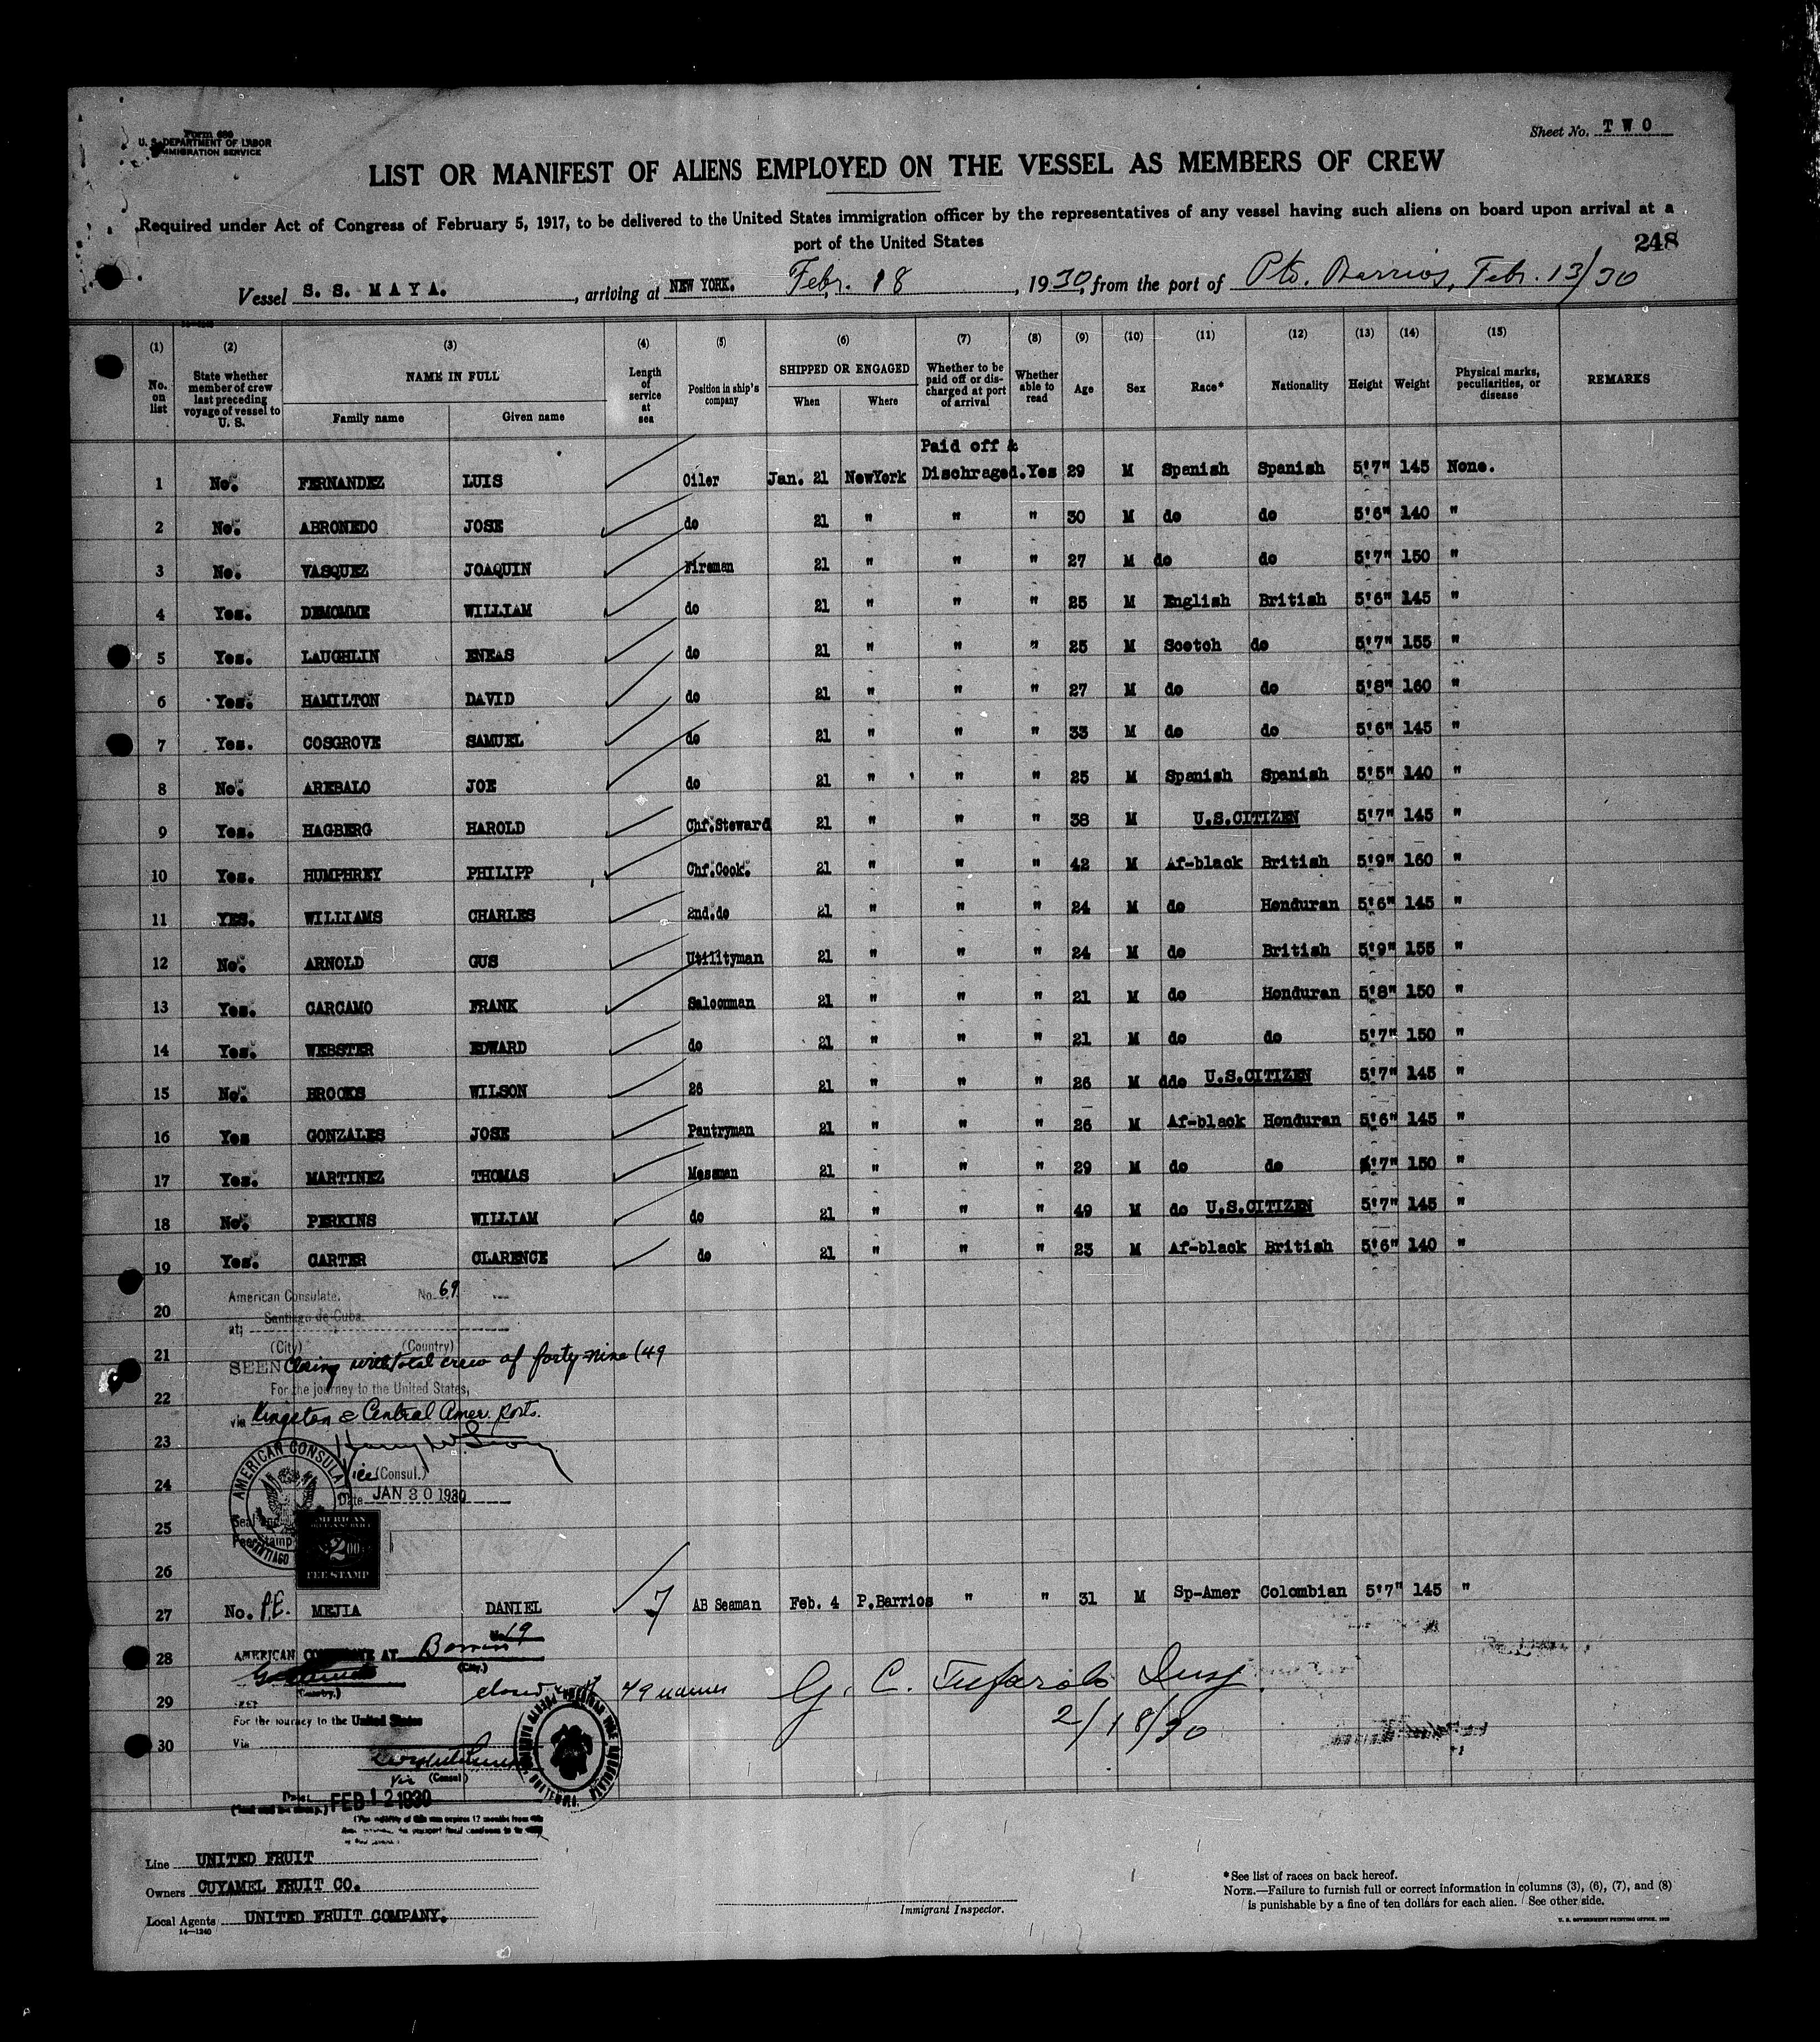 Form 680
U. S. DEPARTMENT OF LABOR
IMMIGRATION SERVICE
Sheet No. T W O
LIST OR MANIFEST OF ALIENS EMPLOYED ON THE VESSEL AS MEMBERS OF CREW
Required under Act of Congress of February 5, 1917, to be delivered to the United States immigration officer by the representatives of any vessel having such aliens on board upon arrival at a
port of the United States
248
Vessel S. S. M A Y A. , arriving at NEW YORK. Febr. 18 , 1930, from the port of Pto. Barrios, Febr. 13/30
(1) (2) (3) (4) (5) (6) (7) (8) (9) (10) (11) (12) (13) (14) (15)
No. on list State whether member of crew last preceding voyage of vessel to U. S. NAME IN FULL Family name Given name Length of service at sea Position in ship's company SHIPPED OR ENGAGED When Where Whether to be paid off or discharged at port of arrival Whether able to read Age Sex Race* Nationality Height Weight Physical marks, peculiarities, or disease REMARKS
Paid off &
1 No. FERNANDEZ LUIS Oiler Jan. 21 NewYork Dischraged. Yes 29 M Spanish Spanish 5'7" 145 None.
2 No. ABRONEDO JOSE do 21 " " " 30 M do do 5'6" 140 "
3 No. VASQUEZ JOAQUIN Fireman 21 " " " 27 M do do 5'7" 150 "
4 Yes. DEMOMME WILLIAM do 21 " " " 25 M English British 5'6" 145 "
5 Yes. LAUGHLIN ENEAS do 21 " " " 25 M Scotch do 5'7" 155 "
6 Yes. HAMILTON DAVID do 21 " " " 27 M do do 5'8" 160 "
7 Yes. COSGROVE SAMUEL do 21 " " " 33 M do do 5'6" 145 "
8 No. AREBALO JOE do 21 " " " 25 M Spanish Spanish 5'5" 140 "
9 Yes. HAGBERG HAROLD Chf.Steward 21 " " " 38 M U.S.CITIZEN 5'7" 145 "
10 Yes. HUMPHREY PHILIPP Chf.Cook. 21 " " " 42 M Af-black British 5'9" 160 "
11 YES. WILLIAMS CHARLES 2nd.do 21 " " " 24 M do Honduran 5'6" 145 "
12 No. ARNOLD GUS Utilityman 21 " " " 24 M do British 5'9" 155 "
13 Yes. CARCAMO FRANK Saloonman 21 " " " 21 M do Honduran 5'8" 150 "
14 Yes. WEBSTER EDWARD do 21 " " " 21 M do do 5'7" 150 "
15 No. BROOKS WILSON 26 21 " " " 26 M ddo U.S.CITIZEN 5'7" 145 "
16 Yes GONZALES JOSE Pantryman 21 " " " 26 M Af-black Honduran 5'6" 145 "
17 Yes. MARTINEZ THOMAS Messman 21 " " " 29 M do do 5'7" 150 "
18 No. PERKINS WILLIAM do 21 " " " 49 M do U.S.CITIZEN 5'7" 145 "
19 Yes. CARTER CLARENCE do 21 " " " 23 M Af-black British 5'6" 140 "
American Consulate. No. 69
20
at; Santiago de Cuba.
(City) (Country)
21
SEEN Closing with total crew of forty-nine (49
For the journey to the United States,
22
via Kingston & Central Amer. Ports.
23
Vice (Consul.)
24
Date JAN 30 1930
AMERICAN CONSULATE
SANTIAGO
Seal and
Fee Stamp
25
AMERICAN
$2.00
FEE STAMP
26
27 No. P.E. MEJIA DANIEL 7 AB Seaman Feb. 4 P.Barrios " " 31 M Sp-Amer Colombian 5'7" 145 "
No 19
28
AMERICAN AT Barrios
(City.)
(Country.)
29
closed with 49 names
G. C. Tufarolo Insp.
2/18/30
For the journey to the United States
Via
30
Vice (Consul)
Date: FEB 12 1930
Line UNITED FRUIT
Owners CUYAMEL FRUIT CO.
Local Agents UNITED FRUIT COMPANY.
14—1240
Immigrant Inspector.
* See list of races on back hereof.
NOTE.—Failure to furnish full or correct information in columns (3), (6), (7), and (8)
is punishable by a fine of ten dollars for each alien. See other side.
U. S. GOVERNMENT PRINTING OFFICE.